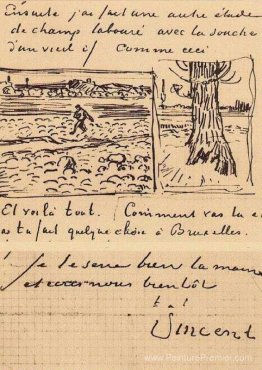 Ensuite j'ai fait une autre étude
de champs labouré avec la souche
d'un vieil if Comme ceci
Et voilà tout. Comment vas tu et
as tu fait quelque chose à Bruxelles.
Je te serre bien la main
et écris nous bientôt
t. à t.
Vincent
www.PeinturePremier.com